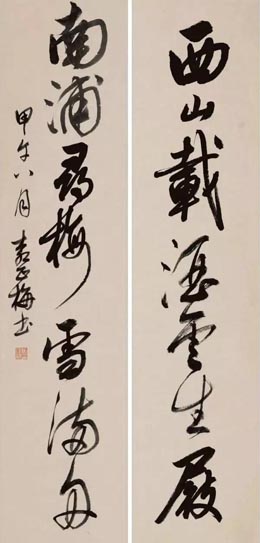 西山載酒雲生屐
南浦尋梅雪滿舟
甲午八月 李正梅书